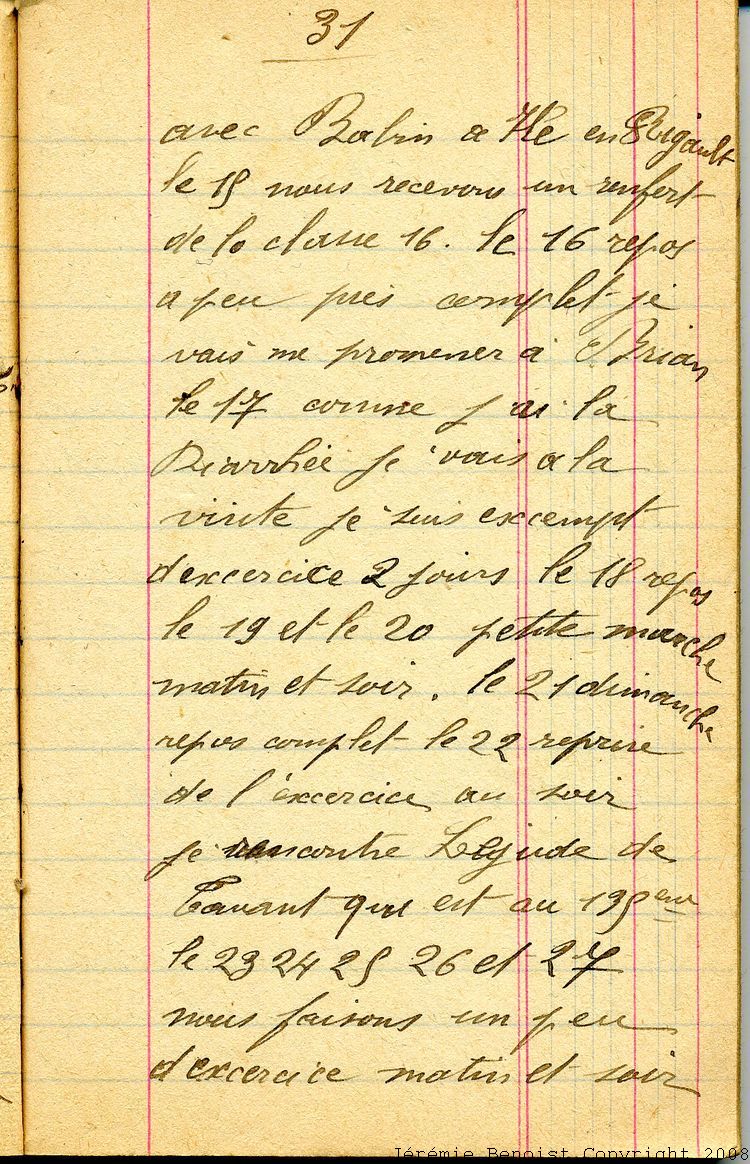 31
avec Babin a Hé en Brigault
le 15 nous recevons un renfort
de la classe 16. le 16 repos
a peu pres complet je
vais me promener a Brian
le 17 comme j'ai la
Diarrhée je vais a la
visite je suis excempt
d'excercice 2 jours le 18 repos
le 19 et le 20 petite marche
matin et soir. le 21 dimanche
repos complet le 22 reprise
de l'excercice au soir
je rencontre Lejude de
Tavant qui est au 135eme
le 23 24 25 26 et 27
nous faisons un peu
d'excercice matin et soir
Jérémie Benoist Copyright 2008